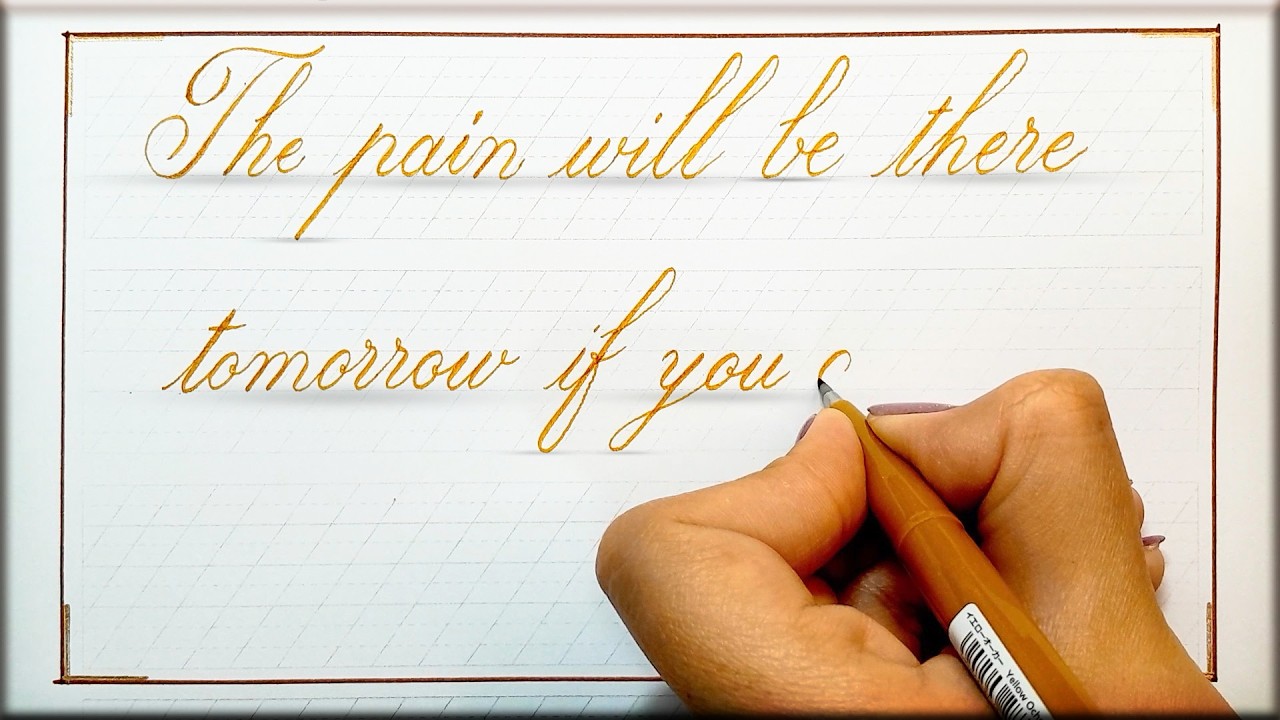 The pain will be there
tomorrow if you
イエローオーカー Yellow Och